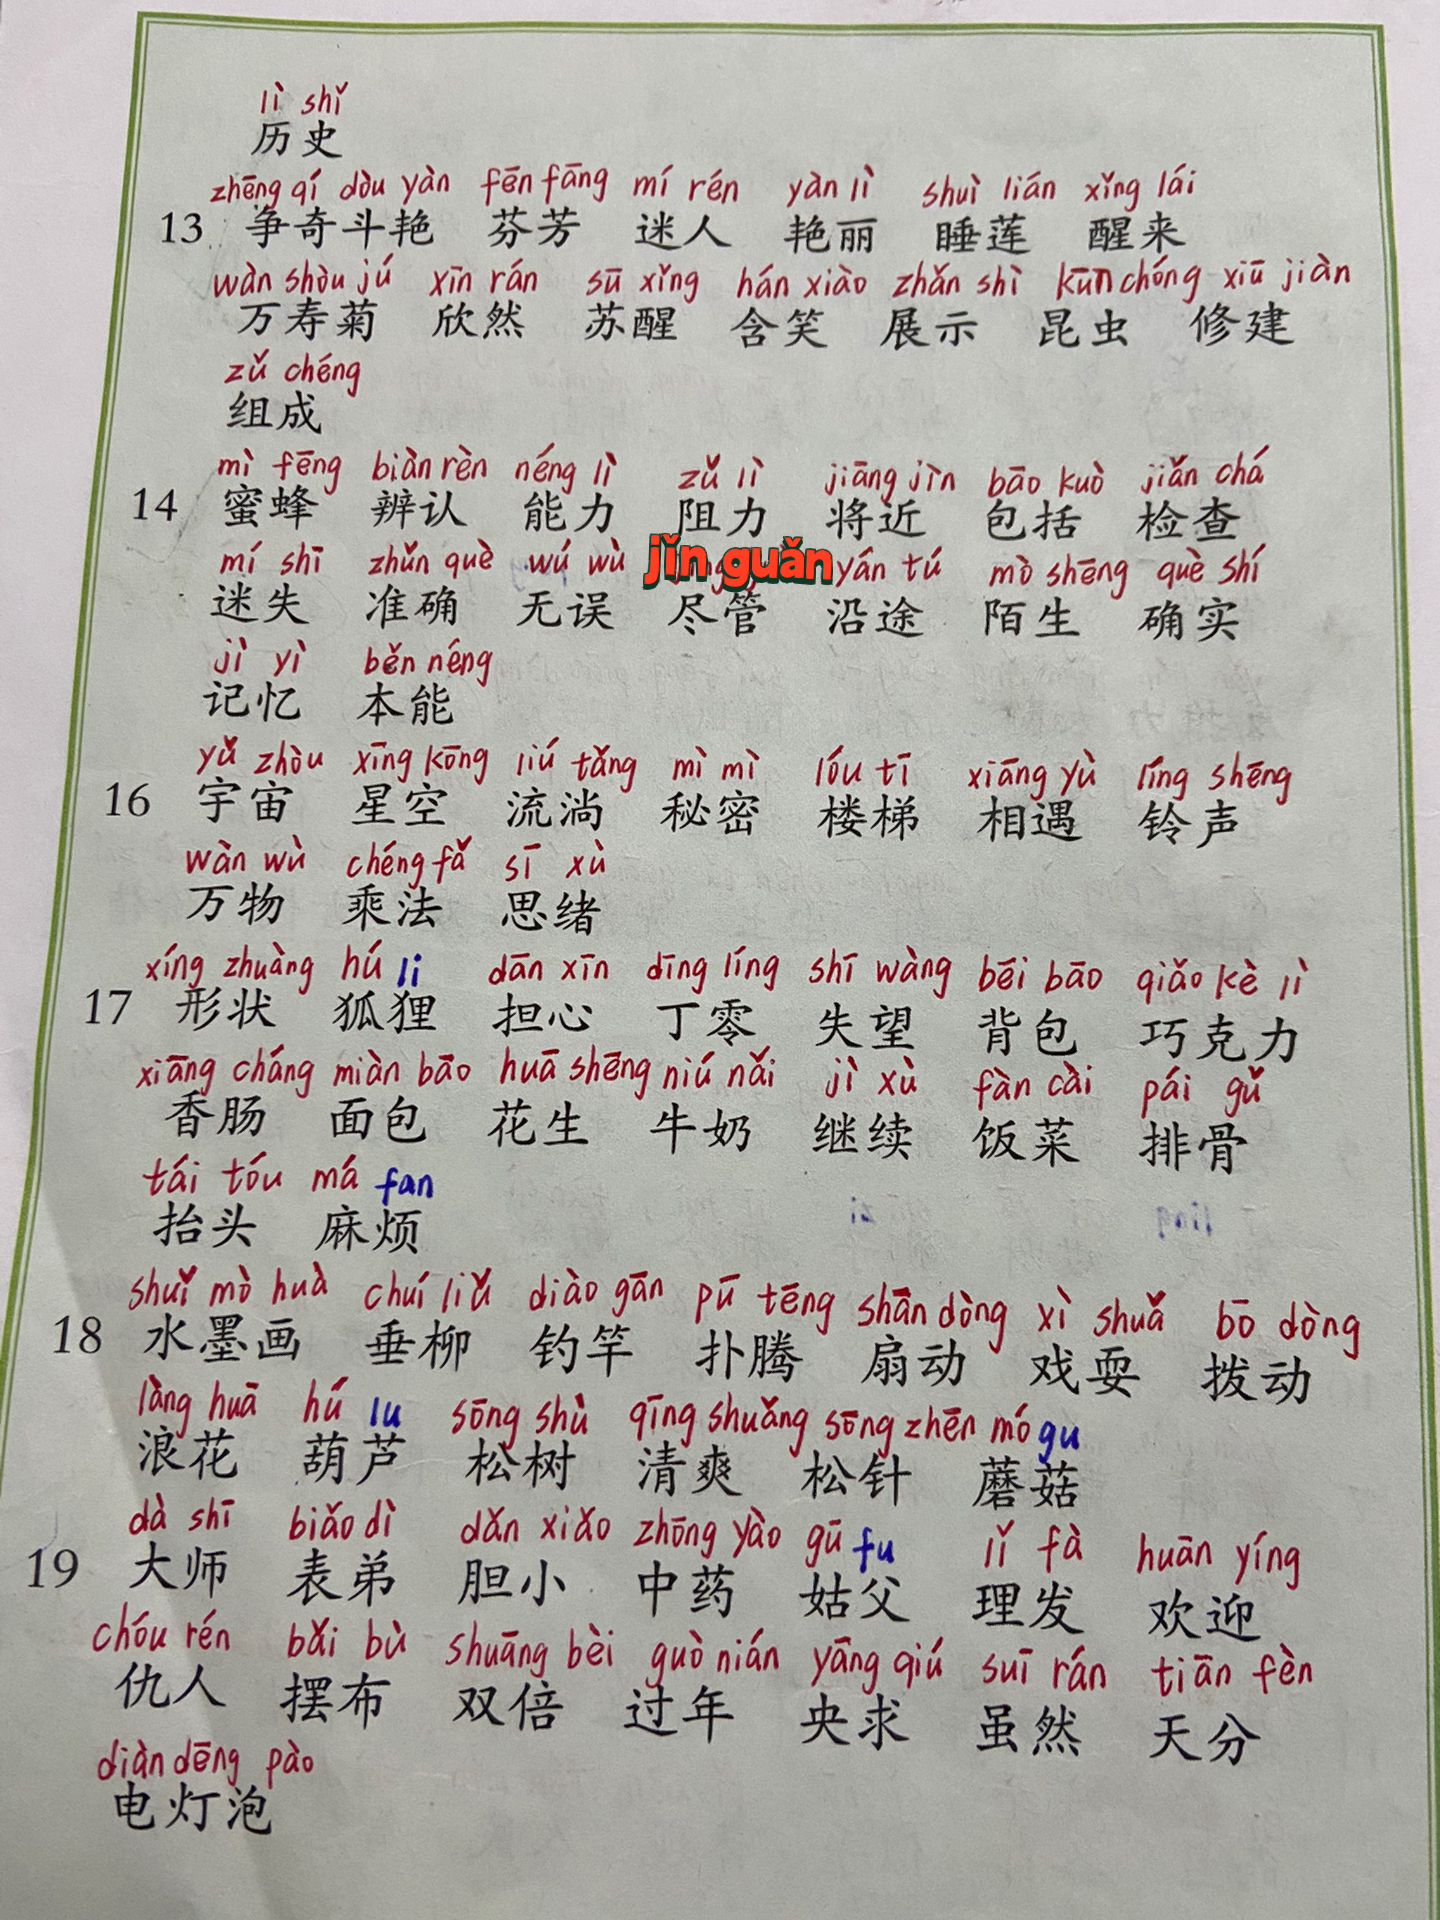 lì shǐ
历史
zhēng qí dòu yàn fēn fāng mí rén yàn lì shuì lián xǐng lái
13 争奇斗艳 芬芳 迷人 艳丽 睡莲 醒来
wàn shòu jú xīn rán sū xǐng hán xiào zhǎn shì kūn chóng xiū jiàn
万寿菊 欣然 苏醒 含笑 展示 昆虫 修建
zǔ chéng
组成
mì fēng biàn rèn néng lì zǔ lì jiāng jìn bāo kuò jiǎn chá
14 蜜蜂 辨认 能力 阻力 将近 包括 检查
mí shī zhǔn què wú wù jǐn guǎn yán tú mò shēng què shí
迷失 准确 无误 尽管 沿途 陌生 确实
jì yì běn néng
记忆 本能
yǔ zhòu xīng kōng liú tǎng mì mì lóu tī xiāng yù líng shēng
16 宇宙 星空 流淌 秘密 楼梯 相遇 铃声
wàn wù chéng fǎ sī xù
万物 乘法 思绪
xíng zhuàng hú li dān xīn dīng líng shī wàng bēi bāo qiǎo kè lì
17 形状 狐狸 担心 丁零 失望 背包 巧克力
xiāng cháng miàn bāo huā shēng niú nǎi jì xù fàn cài pái gǔ
香肠 面包 花生 牛奶 继续 饭菜 排骨
tái tóu má fan
抬头 麻烦
shuǐ mò huà chuí liǔ diào gān pū tēng shān dòng xì shuǎ bō dòng
18 水墨画 垂柳 钓竿 扑腾 扇动 戏耍 拨动
làng huā hú lu sōng shù qīng shuǎng sōng zhēn mó gu
浪花 葫芦 松树 清爽 松针 蘑菇
dà shī biǎo dì dǎn xiǎo zhōng yào gū fu lǐ fà huān yíng
19 大师 表弟 胆小 中药 姑父 理发 欢迎
chóu rén bǎi bù shuāng bèi guò nián yāng qiú suī rán tiān fèn
仇人 摆布 双倍 过年 央求 虽然 天分
diàn dēng pào
电灯泡